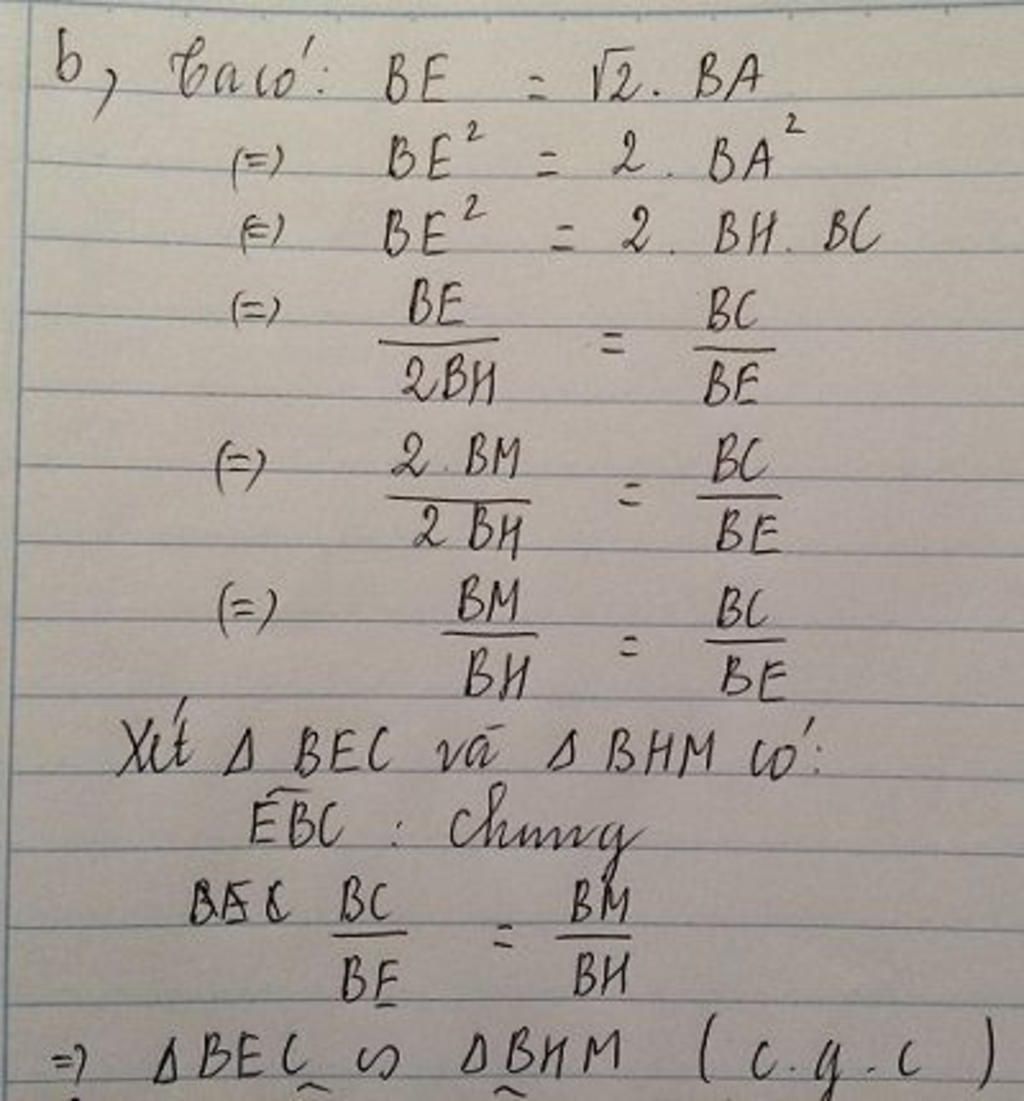 b, Ta có: BE = √2. BA
(=) BE² = 2. BA²
(=) BE² = 2. BH. BC
(=) BE/2BH = BC/BE
(=) 2.BM/2BH = BC/BE
(=) BM/BH = BC/BE
Xét Δ BEC và Δ BHM có:
EBC : chung
BC/BE = BM/BH
=) ΔBEC ∽ ΔBHM (c.g.c)